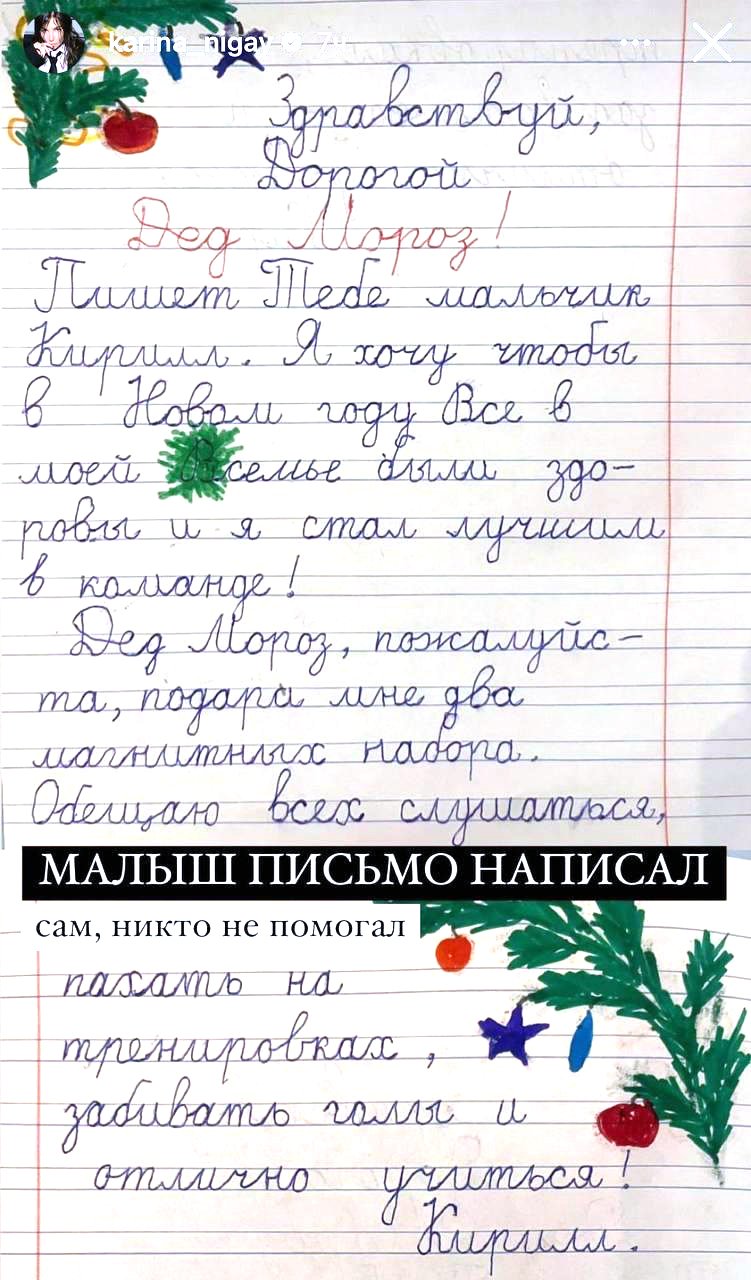 karina_nigay 7ч
Здравствуй,
Дорогой
Дед Мороз!
Пишет Тебе мальчик
Кирилл. Я хочу чтобы
в Новом году Все в
моей семье были здо-
ровы и я стал лучшим
в команде!
Дед Мороз, пожалуйс-
та, подари мне два
магнитных набора.
Обещаю всех слушаться,
МАЛЫШ ПИСЬМО НАПИСАЛ
сам, никто не помогал
пахать на
тренировках,
забивать голы и
отлично учиться!
Кирилл.